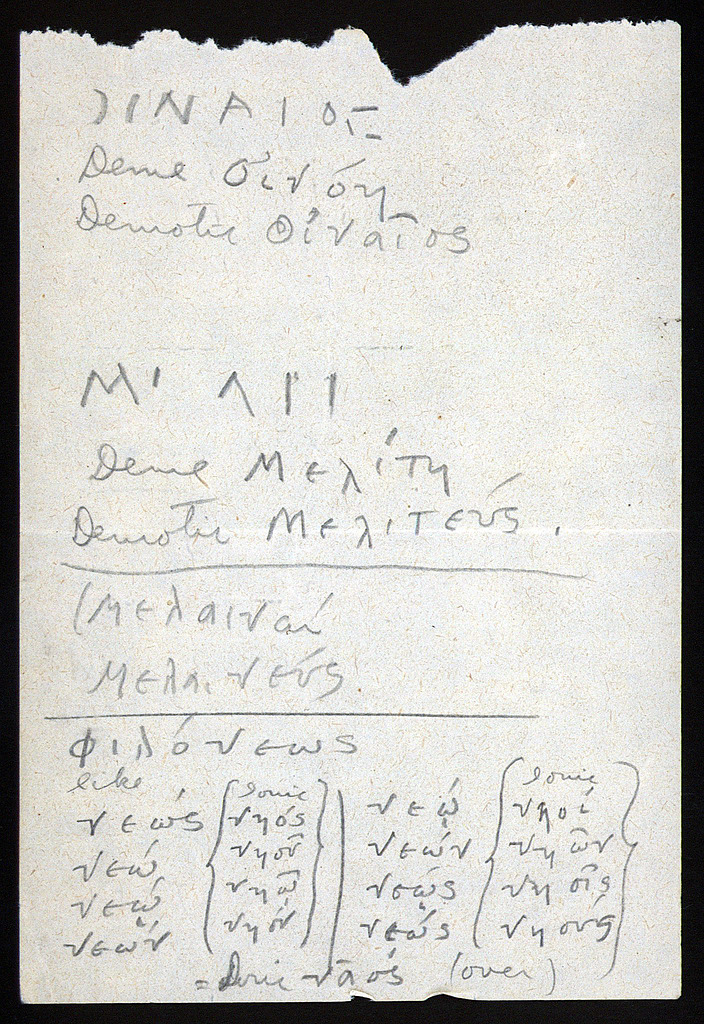 ΟΙΝΑΙΟΣ
Deme Οἰνόη
Demotic Οἰναῖος
Μ' ΛΙΙ
Deme Μελίτη
Demotic Μελιτεύς.
(Μελαιναί
Μελαινεύς
Φιλόνεως
like
νεώς { Ionic νηός
νεώ νηοῦ
νεῴ νηῷ
νεών νηόν }
νεῴ { Ionic νηοί
νεών νηῶν
νεῴς νηοῖς
νεώς νηούς }
= Doric ναός (over)